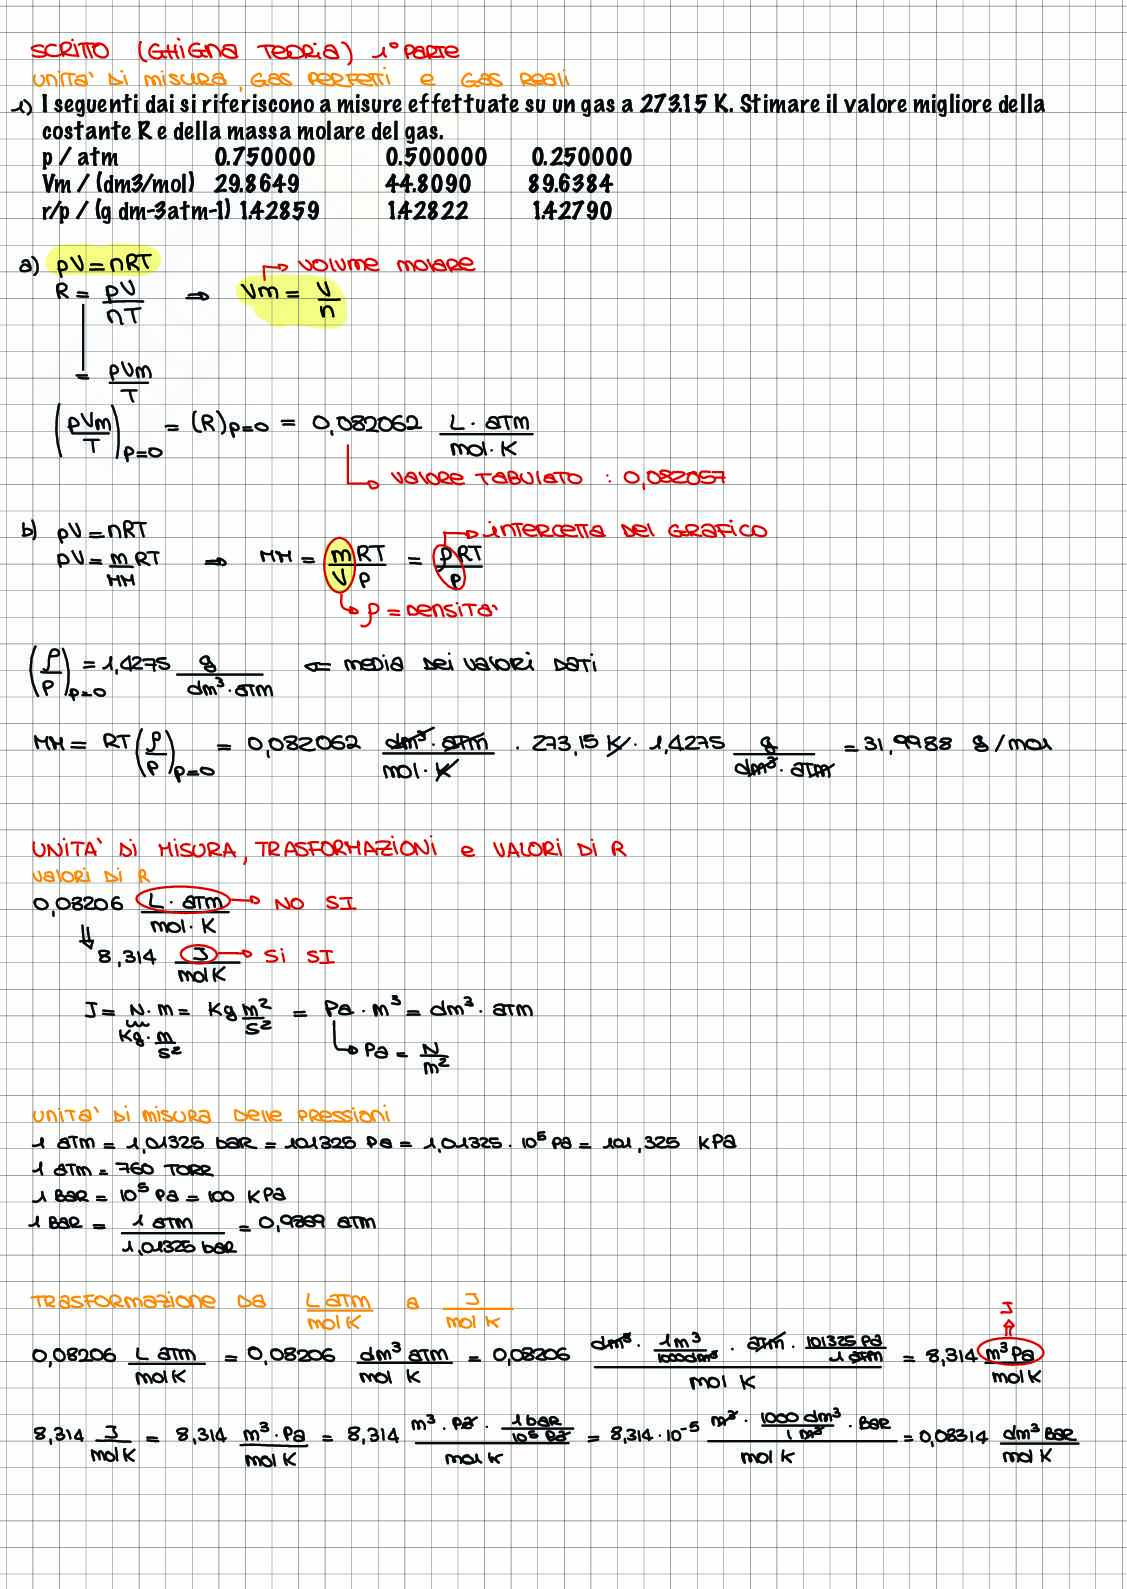 SCRITTO (GHIGNA TEORIA) 1° PARTE
UNITA' DI MISURA, GAS PERFETTI e GAS REALI
1) I seguenti dai si riferiscono a misure effettuate su un gas a 273.15 K. Stimare il valore migliore della
costante R e della massa molare del gas.
p / atm 0.750000 0.500000 0.250000
Vm / (dm3/mol) 29.8649 44.8090 89.6384
r/p / (g dm-3atm-1) 1.42859 1.42822 1.42790
a) pV = nRT → VOLUME MOLARE
R = pV/nT ⇒ Vm = V/n
= pVm/T
(pVm/T)p=0 = (R)p=0 = 0,082062 L · atm/mol · K
→ VALORE TABULATO : 0,082057
b) pV = nRT → INTERCETTA DEL GRAFICO
pV = m/MM RT ⇒ MM = m/V RT/p = ρRT/p
→ ρ = DENSITA'
(ρ/p)p=0 = 1,4275 g/dm³ · atm ⇐ MEDIA DEI VALORI DATI
MM = RT (ρ/p)p=0 = 0,082062 dm³ · atm/mol · K · 273,15 K · 1,4275 g/dm³ · atm = 31,9988 g/mol
UNITA' DI MISURA, TRASFORMAZIONI e VALORI DI R
VALORI DI R
0,08206 L · atm/mol · K → NO SI
⇓ 8,314 J/mol K → Si SI
J = N · m = Kg m²/s² = Pa · m³ = dm³ · atm
Kg · m/s² → Pa = N/m²
UNITA' DI MISURA DELLE PRESSIONI
1 atm = 1,01325 bar = 101325 Pa = 1,01325 · 10⁵ Pa = 101,325 kPa
1 atm = 760 TORR
1 BAR = 10⁵ Pa = 100 KPa
1 BAR = 1 atm/1,01325 bar = 0,9869 atm
TRASFORMAZIONE DA L atm/mol K a J/mol K
J
0,08206 L atm/mol K = 0,08206 dm³ atm/mol K = 0,08206 dm³ · 1 m³/1000 dm³ · atm · 101325 Pa/1 atm/mol K = 8,314 m³ Pa/mol K
8,314 J/mol K = 8,314 m³ · Pa/mol K = 8,314 m³ · Pa · 1 bar/10⁵ Pa/mol K = 8,314 · 10⁻⁵ m³ · 1000 dm³/1 m³ · BAR/mol K = 0,08314 dm³ BAR/mol K